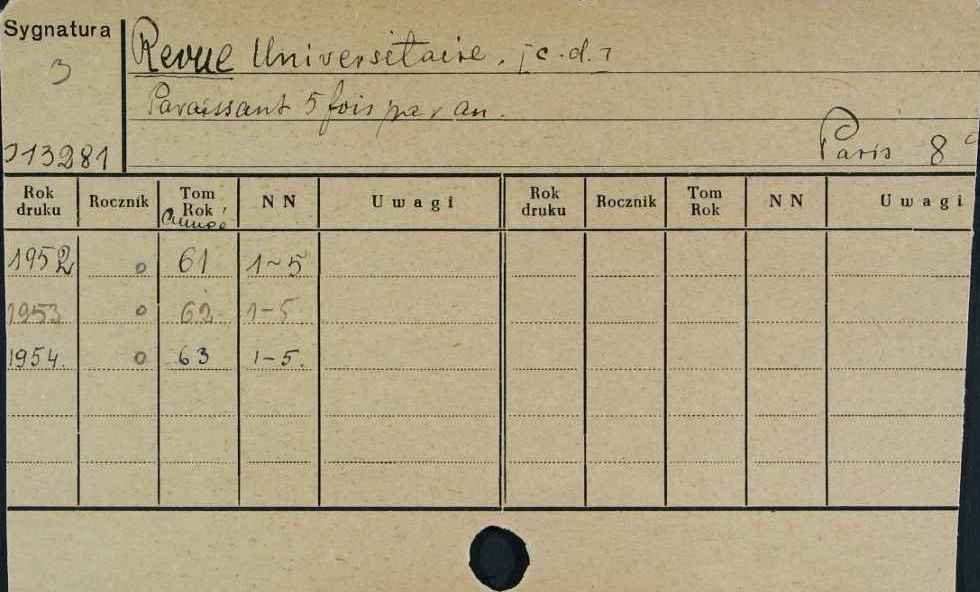 Sygnatura
3
313281
Revue Universitaire. [c.d.]
Paraissant 5 fois par an.
Paris 8
Rok druku Rocznik Tom Rok NN Uwagi Rok druku Rocznik Tom Rok NN Uwagi
Année
1952 0 61 1-5
1953 0 62 1-5
1954. 0 63 1-5.